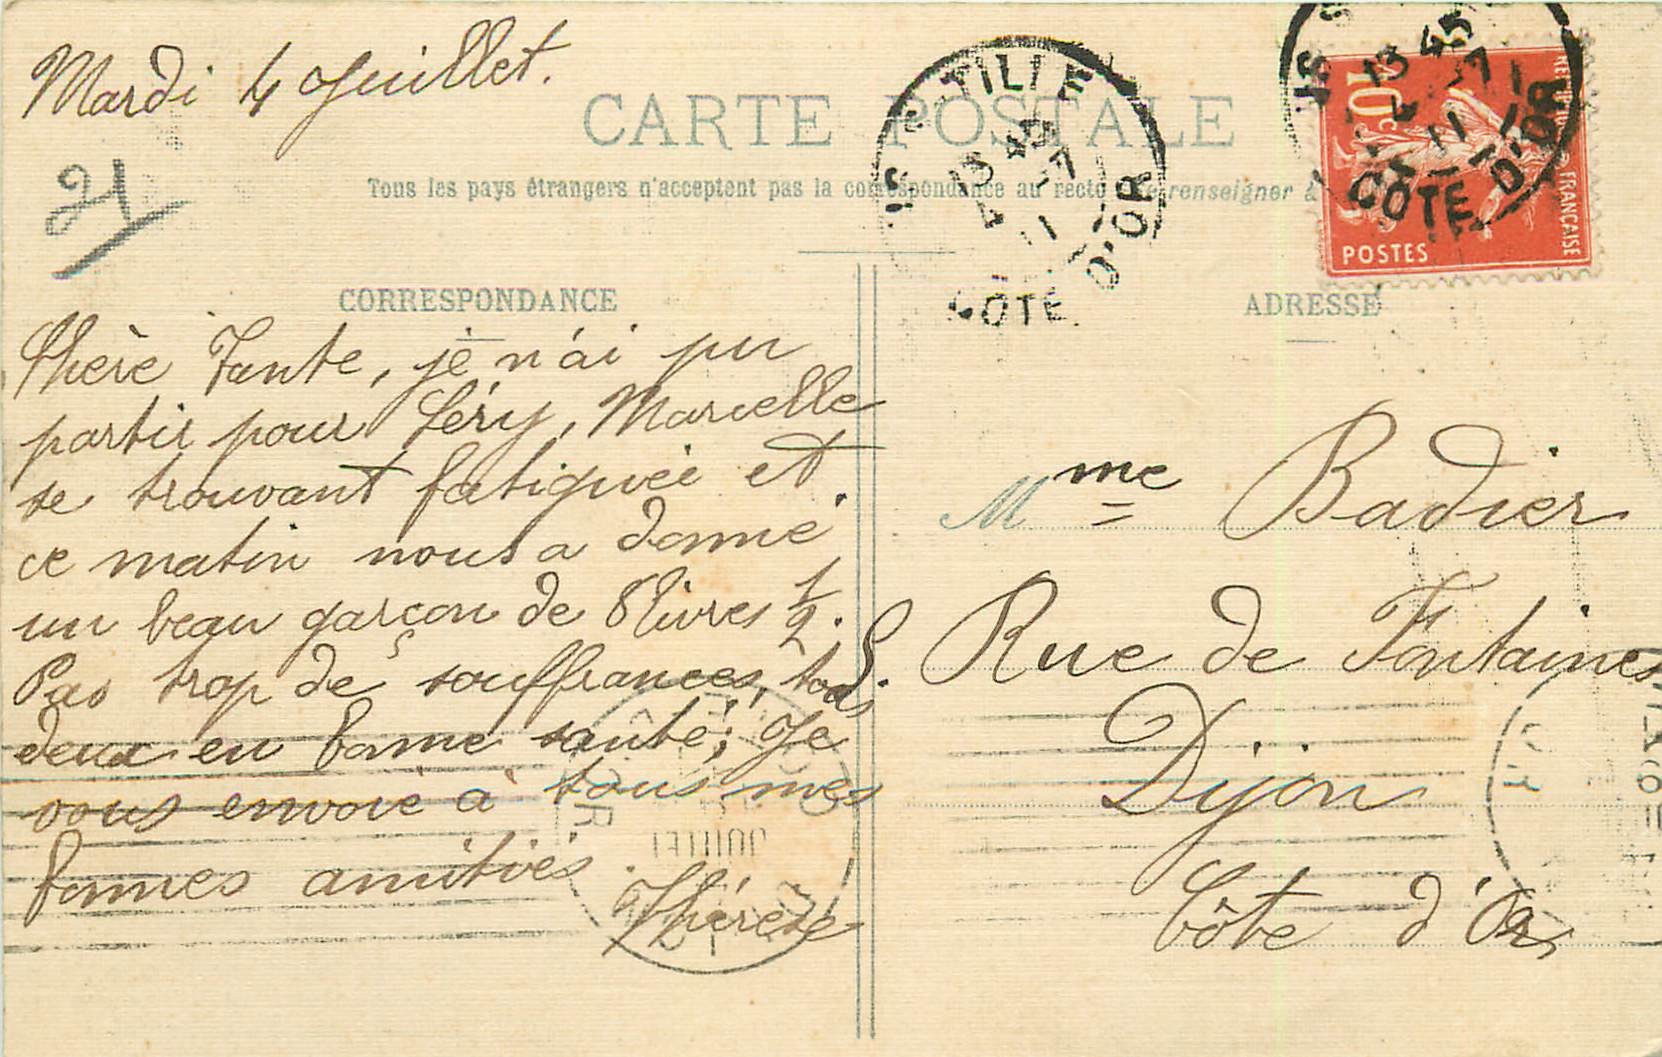 Mardi 4 Juillet.
CARTE POSTALE
Tous les pays étrangers n'acceptent pas la correspondance au recto renseigner à
21
CORRESPONDANCE
Chère Tante, je n'ai pu
partir pour Léry, Marcelle
se trouvant fatiguée et
ce matin nous a donné
un beau garçon de 8 livres 1/2.
Pas trop de souffrances, tous
deux en bonne santé; Je
vous envoie à tous mes
bonnes amitiés.
Thérèse
IS-S-TILLE
13 45
4 -7
11
COTE D'OR
13 45
4 -7
11
COTE D'OR
10c
POSTES
FRANÇAISE
ADRESSE
Mme Badier
8. Rue de Fontaines
Dijon
Côte d'Or
JUILLET